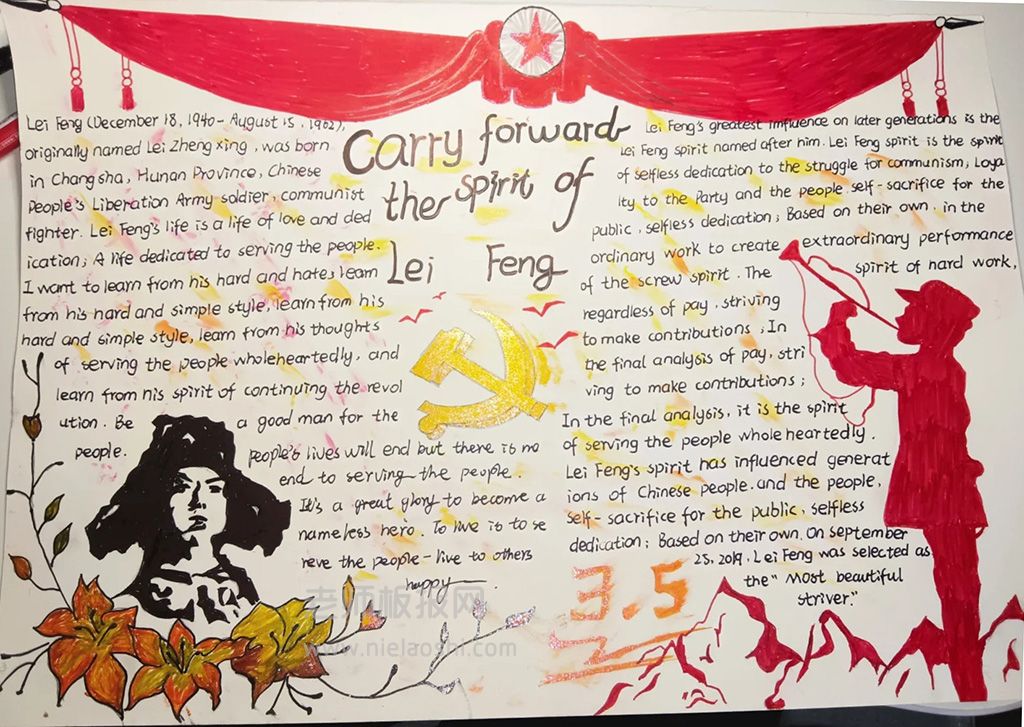 Carry forward
the spirit of
Lei Feng
Lei Feng (December 18, 1940 - August 15, 1962),
originally named Lei Zheng xing, was born
in Changsha, Hunan Province, Chinese
People's Liberation Army soldier, communist
fighter. Lei Feng's life is a life of love and ded
ication; A life dedicated to serving the people.
I want to learn from his hard and hate, learn
from his hard and simple style, learn from his
hard and simple style, learn from his thoughts
of serving the people wholeheartedly, and
learn from his spirit of continuing the revol
ution. Be a good man for the
people. people's lives will end but there is no
end to serving the people.
It's a great glory to become a
nameless hero. To live is to se
reve the people - live to others
happy.
Lei Feng's greatest influence on later generations is the
Lei Feng spirit named after him. Lei Feng spirit is the spirit
of selfless dedication to the struggle for communism, Loya
lty to the Party and the people, self-sacrifice for the
public, selfless dedication; Based on their own, in the
ordinary work to create extraordinary performance
of the screw spirit. The spirit of hard work,
regardless of pay, striving
to make contributions; In
the final analysis of pay, stri
ving to make contributions;
In the final analysis, it is the spirit
of serving the people whole heartedly.
Lei Feng's spirit has influenced generat
ions of Chinese people. and the people,
self-sacrifice for the public, selfless
dedication; Based on their own. On september
25, 2019, Lei Feng was selected as
the "Most beautiful
striver."
3.5
老师板报网
www.nielaoshi.com